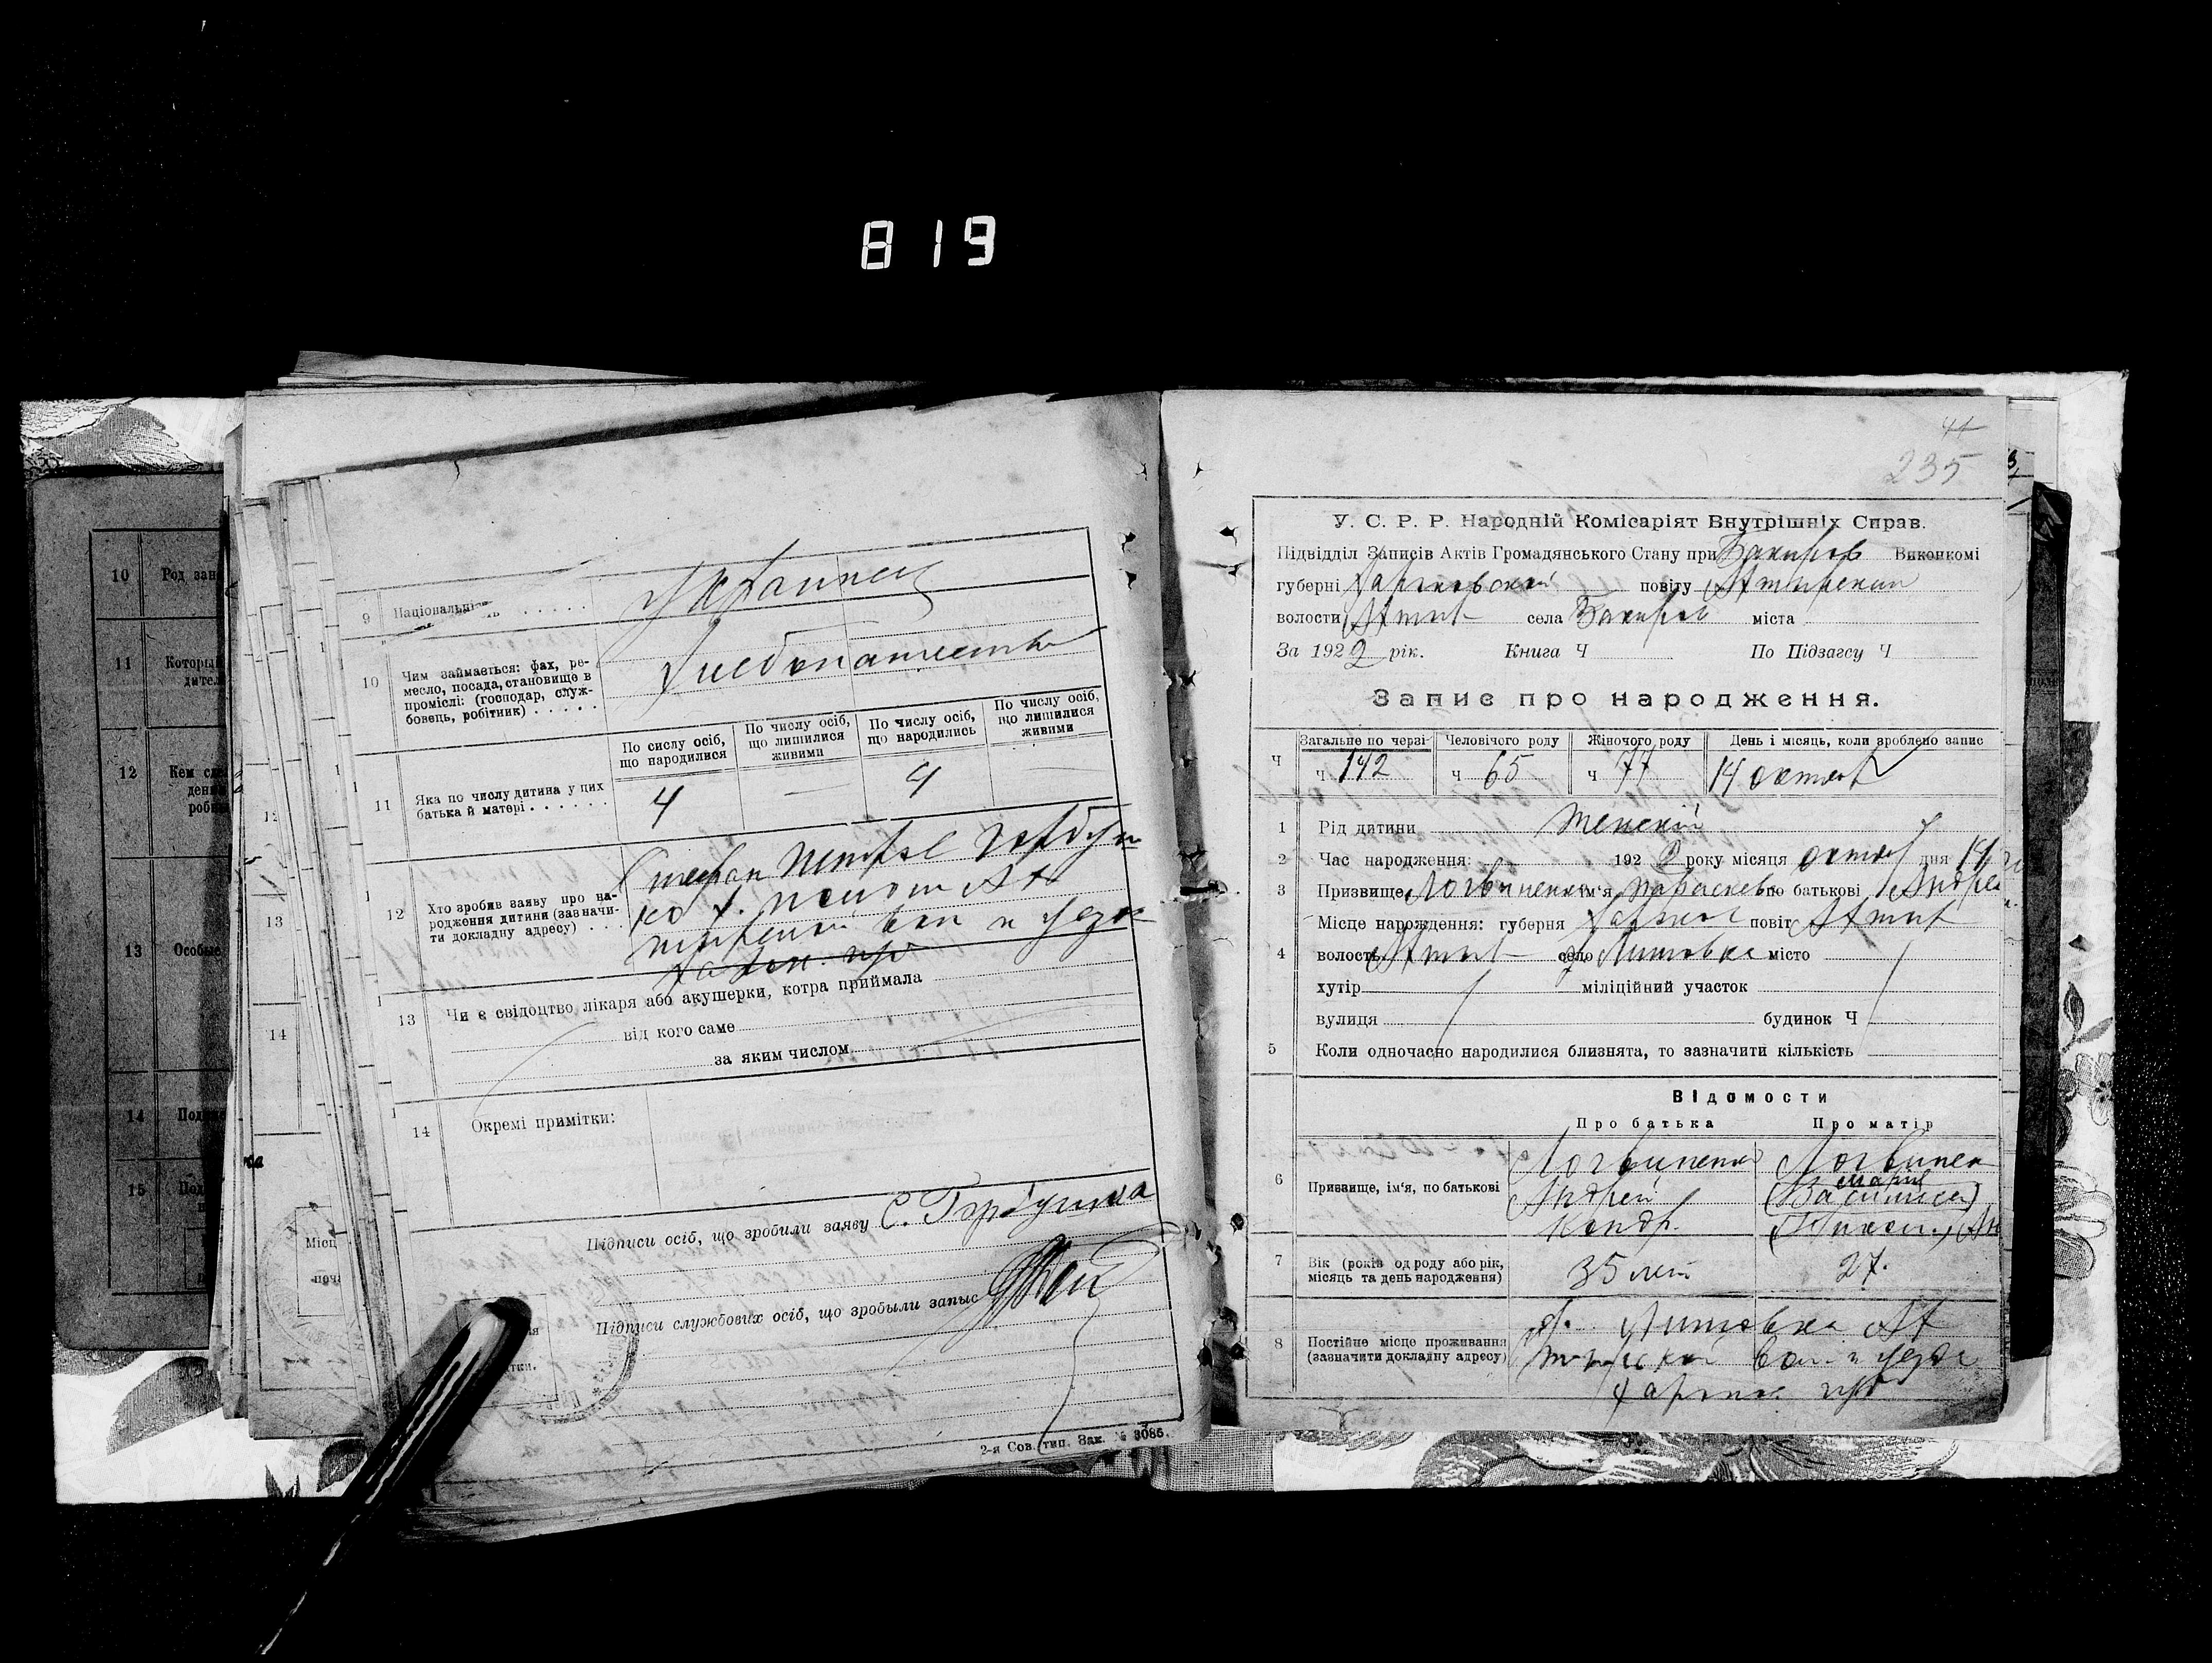 819
10 Род зан
11 Которы
дител
12 Кем
13 Особые
14
15
12
13
14
Місц
9 Національність
Украинец
10 Чим займається: фах, ре-
месло, посада, становище в
промислі: (господар, служ-
бовець, робітник)
Хлебопашество
По сислу осіб,
що народилися
По числу осіб,
що лишилися
живими
По числу осіб,
що народились
По числу осіб,
що лишилися
живими
11 Яка по числу дитина у цих
батька й матері
4 — 4
12 Хто зробив заяву про на-
родження дитини (зазначи-
ти докладну адресу)
Стефан Горбун
ко х. Ах
тырской вол и уезда
Харьк. губ
13 Чи є свідоцтво лікаря або акушерки, котра приймала
від кого саме
за яким числом
14 Окремі примітки:
Підписи осіб, що зробили заяву С. Горбунка
Підписи службових осіб, що зробыли запыс
2-я Сов. тип. Зак. № 3085.
44
235
У. С. Р. Р. Народній Комісаріят Внутрішніх Справ.
Підвідділ Записів Актів Громадянського Стану при Бакиров Виконкомі
губерні Харьковской повіту Ахтырский
волости Ахтыр села Бакиров міста
За 1922 рік. Книга Ч По Підзагсу Ч
Запис про народження.
Ч Загальне по черзі Человічого роду Жіночого роду День і місяць, коли зроблено запис
ч 142 ч 65 ч 77 14 октяб
1 Рід дитини Женский
2 Час народження: 1922 року місяця октяб дня 14
3 Призвище Логвиненко ім'я Параскева по батькові Андре
Місце народження: губерня Харьков повіт Ахтыр
4 волость Ахтыр село Литовка місто
хутір міліційний участок
вулиця будинок Ч
5 Коли одночасно народилися близнята, то зазначити кількість
Відомости
Про батька Про матір
6 Призвище, ім'я, по батькові
Логвиненко
Андрей
Кондр.
Логвинен
Мария
(Василиса)
7 Вік (років од роду або рік,
місяць та день народження)
35 лет 27.
8 Постійне місце проживання
(зазначити докладну адресу)
х. Литовка Ах
тырской вол. и уезда
Харьков губ